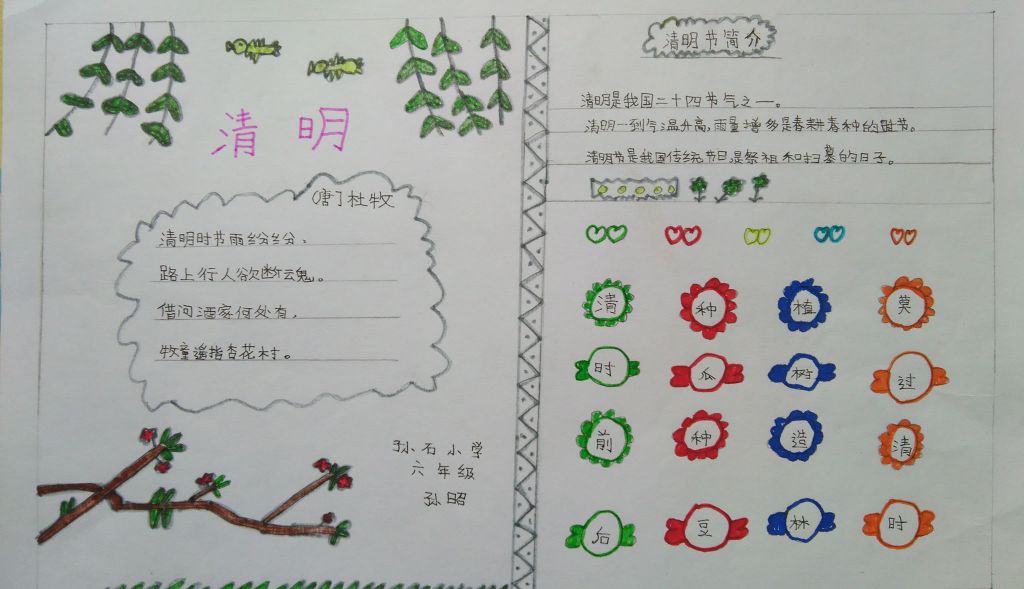 清明
(唐)杜牧
清明时节雨纷纷,
路上行人欲断魂。
借问酒家何处有,
牧童遥指杏花村。
孙石小学
六年级
孙昭
清明节简介
清明是我国二十四节气之一。
清明一到气温升高,雨量增多是春耕春种的节。
清明节是我国传统节日,是祭祖和扫墓的日子。
清时前后
种瓜种豆
植树造林
莫过清时